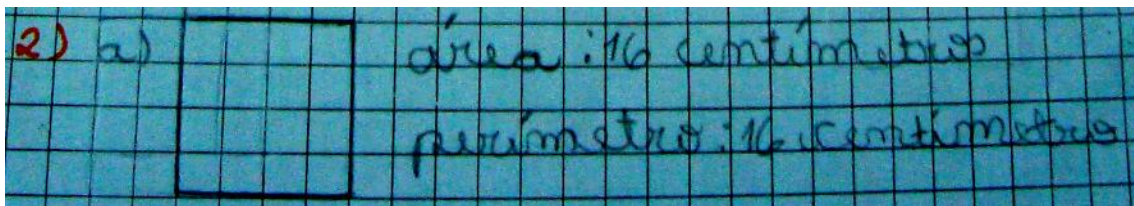 2) a) área : 16 centímetros
perímetro : 16 centímetros